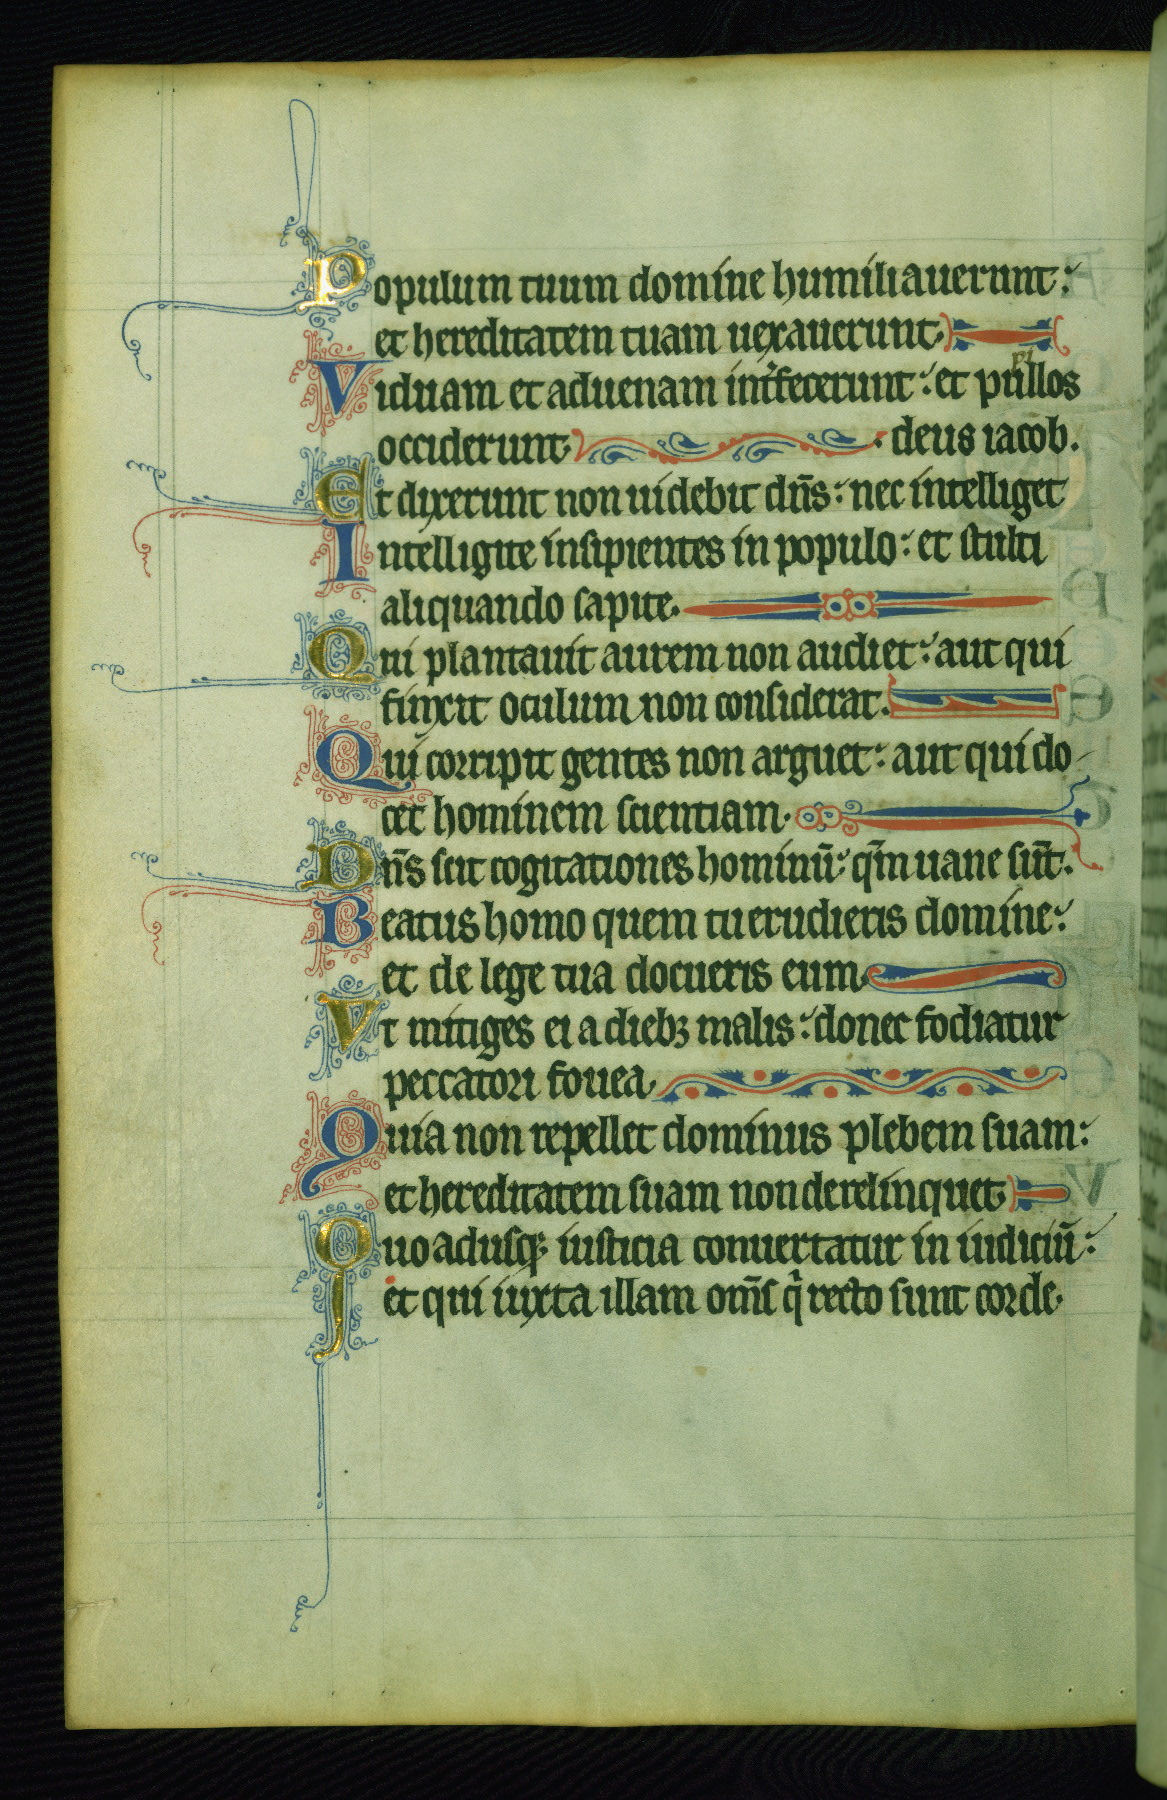 Populum tuum domine humiliauerunt:
et hereditatem tuam uexauerunt.
Viduam et aduenam int̉fecerunt: et pupillos
occiderunt. deus iacob.
Et dixerunt non uidebit dn̄s: nec intelliget
Intelligite insipientes in populo: et stulti
aliquando sapite.
Qui plantauit aurem non audiet: aut qui
finxit oculum non considerat.
Qui corripit gentes non arguet: aut qui do
cet hominem scientiam.
Dn̄s scit cogitationes hominū: qm̄ uane sūt.
Beatus homo quem tu erudieris domine:
et de lege tua docueris eum.
Vt mitiges ei a diebꝫ malis: donec fodiatur
peccatori fouea.
Quia non repellet dominus plebem suam:
et hereditatem suam non derelinquet.
Quoadusqꝫ iusticia conuertatur in iudiciū:
et qui iuxta illam om̄s q̇ recto sunt corde.